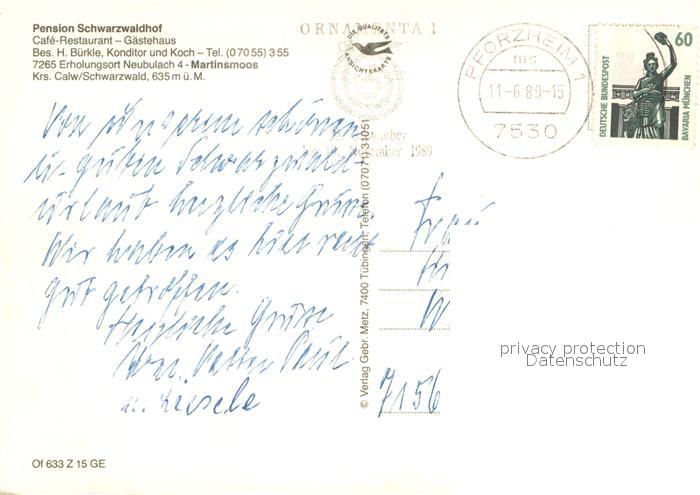 Pension Schwarzwaldhof
Café-Restaurant – Gästehaus
Bes. H. Bürkle, Konditor und Koch – Tel. (0 70 55) 3 55
7265 Erholungsort Neubulach 4 - Martinsmoos
Krs. Calw/Schwarzwald, 635 m ü. M.
ORNAMENTA 1
DIE QUALITÄTS
ANSICHTSKARTE
1989
PFORZHEIM 1
ms
11-6 89-15
7530
60
DEUTSCHE BUNDESPOST
BAVARIA MÜNCHEN
Von schönen
u. guten Schwarzwald
urlaub herzliche Grüße
Wir haben es hier recht
gut getroffen.
Herzliche Grüsse
Paul
u.
© Verlag Gebr. Metz, 7400 Tübingen, Telefon (0 70 71) 31051
7156
privacy protection
Datenschutz
Of 633 Z 15 GE